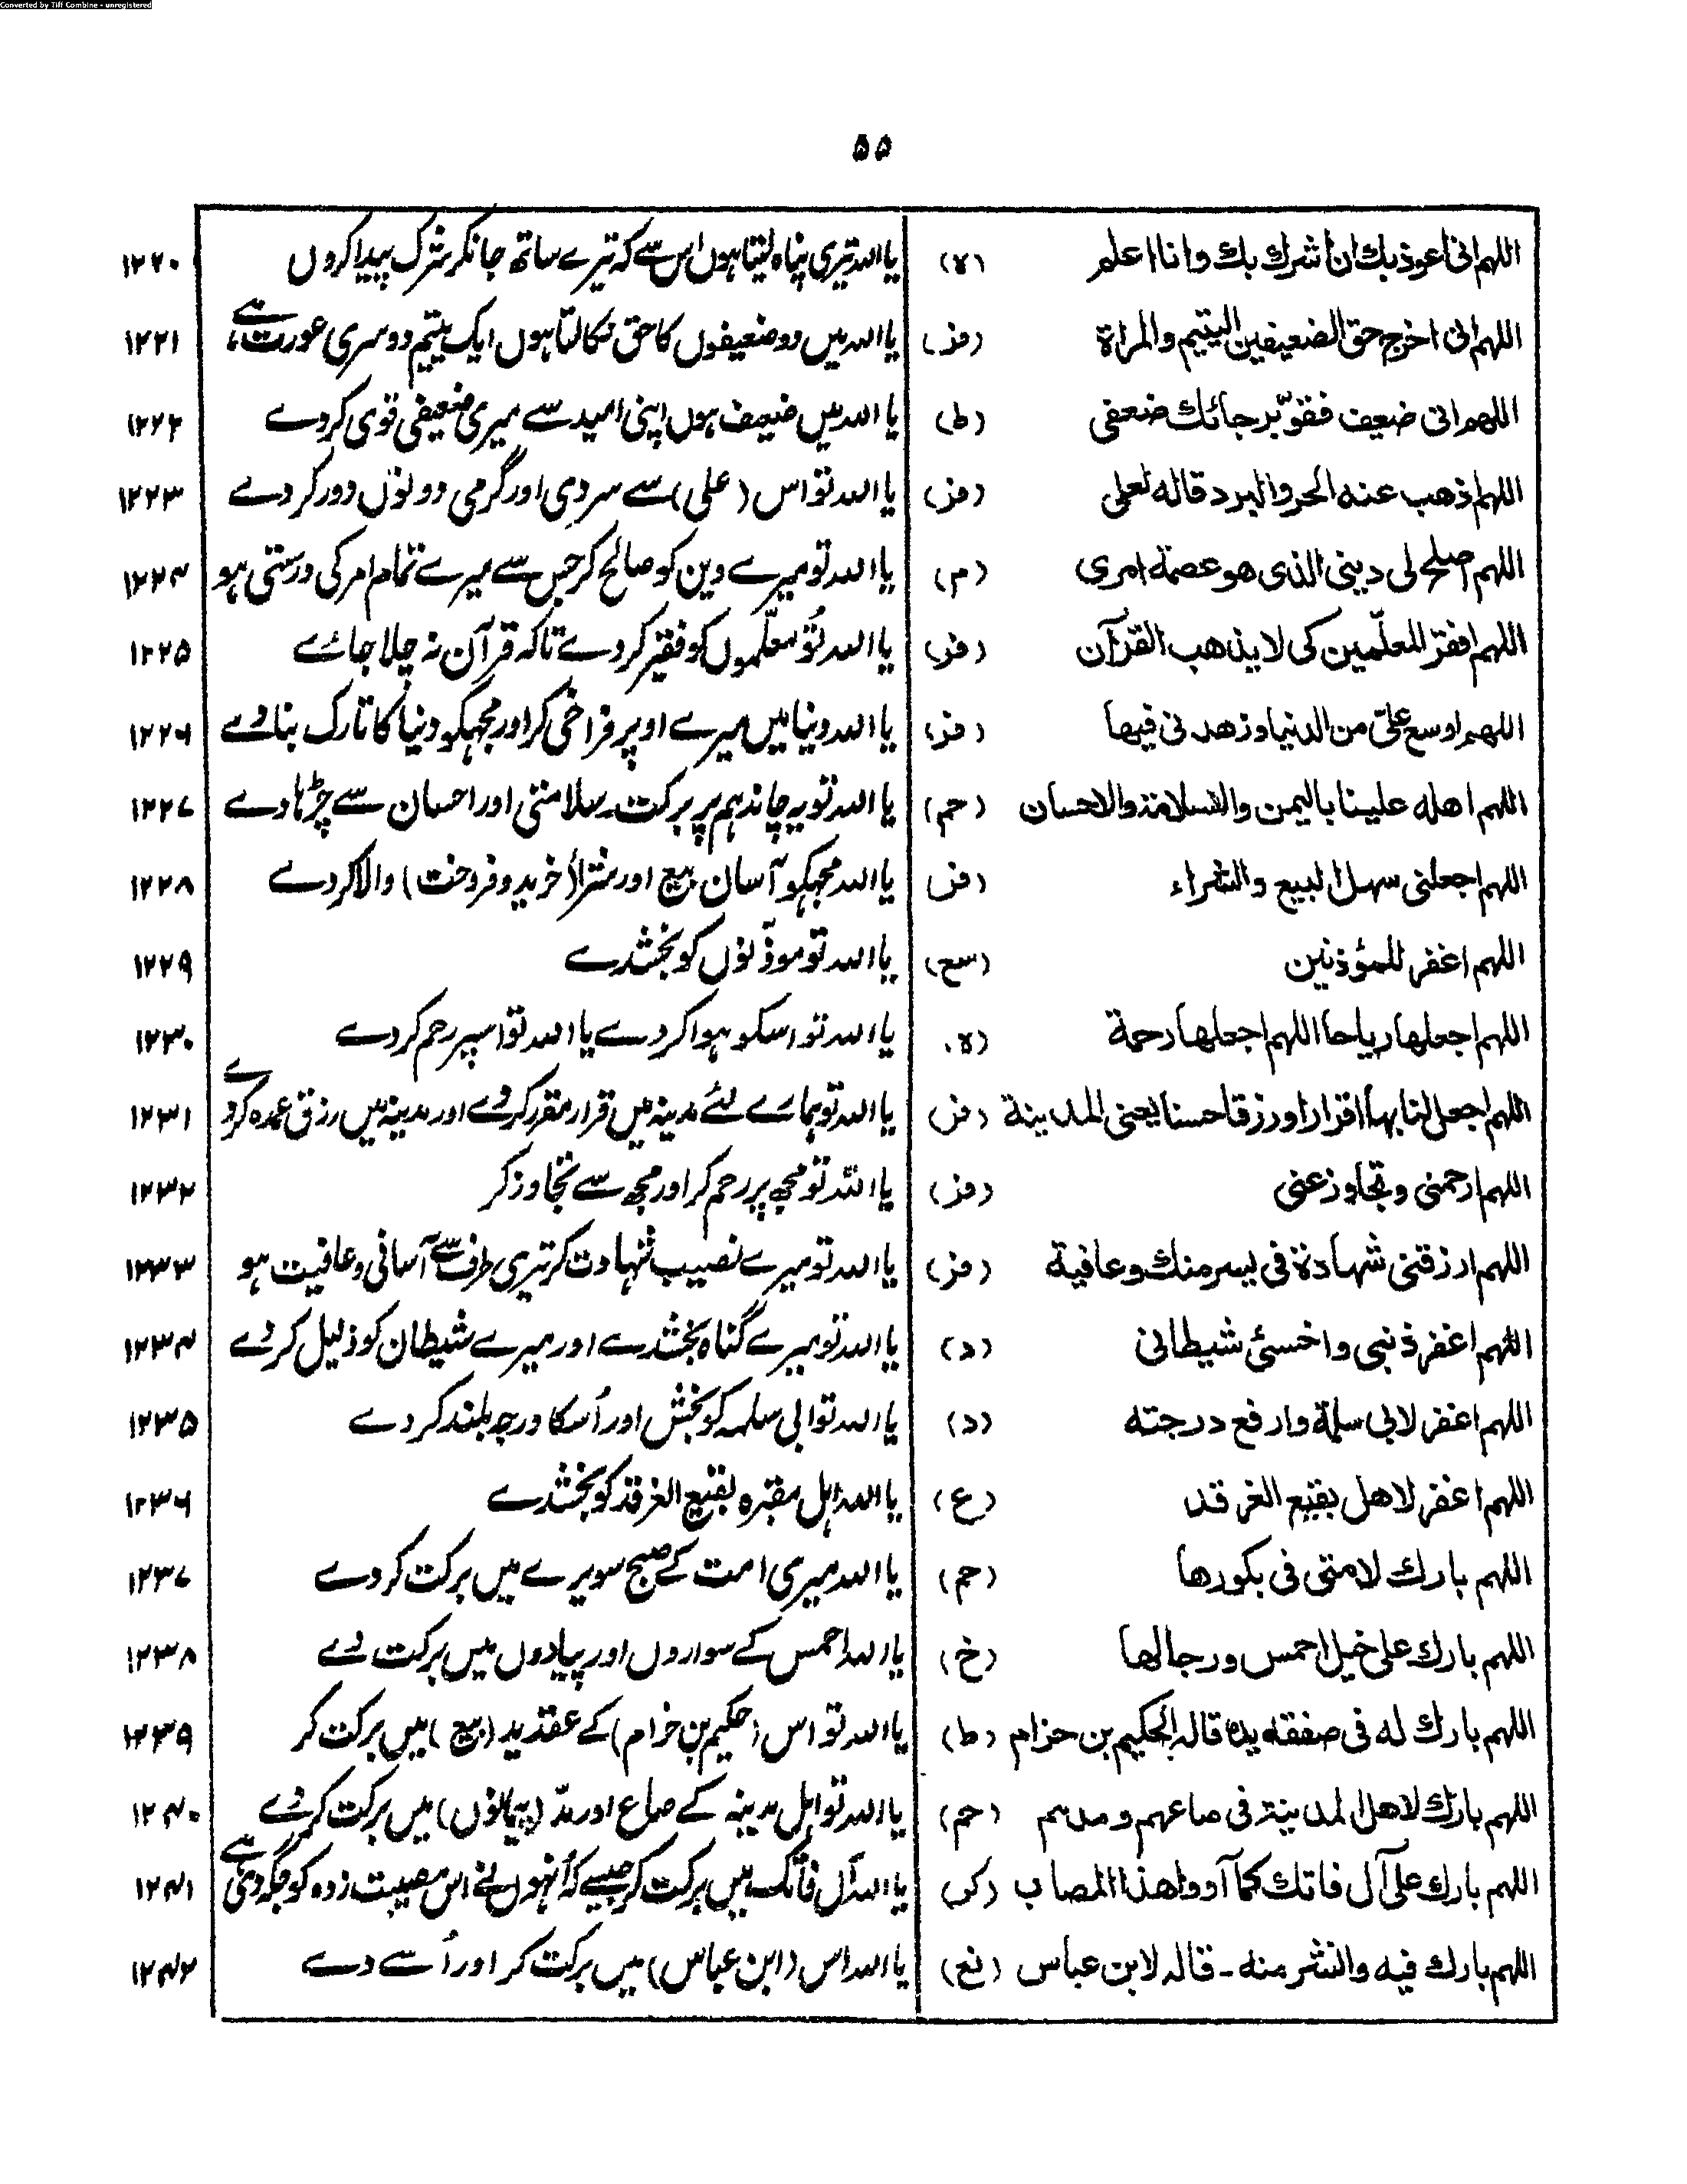 Converted by Tiff Combine - unregistered
۵۵
اللهم انی اعوذ بك ان اشرك بك وانا اعلم (لا) یا اللہ تیری پناہ لیتا ہوں اس سے کہ تیرے ساتھ جانکر شرک پیدا کروں ۱۲۲۰
اللهم انی اخرج حق الضعیفین الیتیم والمراة (فز) یا اللہ میں دو ضعیفوں کا حق نکالتا ہوں ایک یتیم دوسری عورت سے، ۱۲۲۱
اللهم انی ضعیف فقوّ برجائك ضعفی (ط) یا اللہ میں ضعیف ہوں اپنی امید سے میری ضعیفی قوی کردے ۱۲۲۲
اللهم اذهب عنه الحر والبرد قاله لعلی (فز) یا اللہ تو اس (علی) سے سردی اور گرمی دونوں دور کردے ۱۲۲۳
اللهم اصلح لی دینی الذی هو عصمة امری (م) یا اللہ تو میرے دین کو صالح کر جس سے میرے تمام امر کی درستی ہو ۱۲۲۴
اللهم افقر المعلّمین کی لا یذهب القرآن (فز) یا اللہ تُو معلّموں کو فقیر کردے تاکہ قرآن نہ چلا جائے ۱۲۲۵
اللهم اوسع علیّ من الدنیا وزهدنی فیها (فز) یا اللہ دنیا میں میرے اوپر فراخی کر اور مجہکو دنیا کا تارک بنادے ۱۲۲۶
اللهم اهله علینا بالیمن والسلامة والاحسان (حم) یا اللہ تو یہ چاند ہم پر برکت سلامتی اور احسان سے چڑہادے ۱۲۲۷
اللهم اجعلنی سهل البیع والشراء (فز) یا اللہ مجہکو آسان بیع اور شرا (خرید و فروخت) والا کردے ۱۲۲۸
اللهم اغفر للمؤذنین (سع) یا اللہ تو موذّنوں کو بخشدے ۱۲۲۹
اللهم اجعلها ریاحا اللهم اجعلها رحمة (لا) یا اللہ تو اسکو ہوا کردے یا اللہ تو اسپر رحم کردے ۱۲۳۰
اللهم اجعل لنا بها اقرارا ورزقا حسنا یعنی المدینة (فز) یا اللہ تو ہمارے لئے مدینہ میں قرار مقرر کردے اور مدینہ میں رزق عمدہ کردے ۱۲۳۱
اللهم ارحمنی وتجاوز عنی (فز) یا اللہ تو مجھ پر رحم کر اور مجھ سے تجاوز کر ۱۲۳۲
اللهم ارزقنی شهادة فی یسر منك وعافیة (فز) یا اللہ تو میرے نصیب شہادت کر تیری طرف سے آسانی و عافیت ہو ۱۲۳۳
اللهم اغفر ذنبی واخسئ شیطانی (د) یا اللہ تو میرے گناہ بخشدے اور میرے شیطان کو ذلیل کردے ۱۲۳۴
اللهم اغفر لابی سلمة وارفع درجته (د) یا اللہ تو ابی سلمہ کو بخش اور اُسکا درجہ بلند کردے ۱۲۳۵
اللهم اغفر لاهل بقیع الغرقد (ع) یا اللہ اہل مقبرہ بقیع الغرقد کو بخشدے ۱۲۳۶
اللهم بارك لامتی فی بکورها (حم) یا اللہ میری امت کے صبح سویرے میں برکت کردے ۱۲۳۷
اللهم بارك علی خیل احمس ورجالها (خ) یا اللہ احمس کے سواروں اور پیادوں میں برکت دے ۱۲۳۸
اللهم بارك له فی صفقة یدہ قالہ لحکیم بن حزام (ط) یا اللہ تو اس (حکیم بن حزام) کے عقد ید (بیع) میں برکت کر ۱۲۳۹
اللهم بارك لاهل المدینة فی صاعهم ومدهم (حم) یا اللہ تو اہل مدینہ کے صاع اور مدّ (پیمانوں) میں برکت کردے ۱۲۴۰
اللهم بارك علی آل فاتك کما آووا هذا المصاب (کر) یا اللہ آل فاتک میں برکت کر جیسے کہ اُنہوں نے اس مصیبت زدہ کو جگہ دی ہے ۱۲۴۱
اللهم بارك فیه وانشر منه ۔ قاله لابن عباس (نع) یا اللہ اس (ابن عباس) میں برکت کر اور اُسے دے ۱۲۴۲